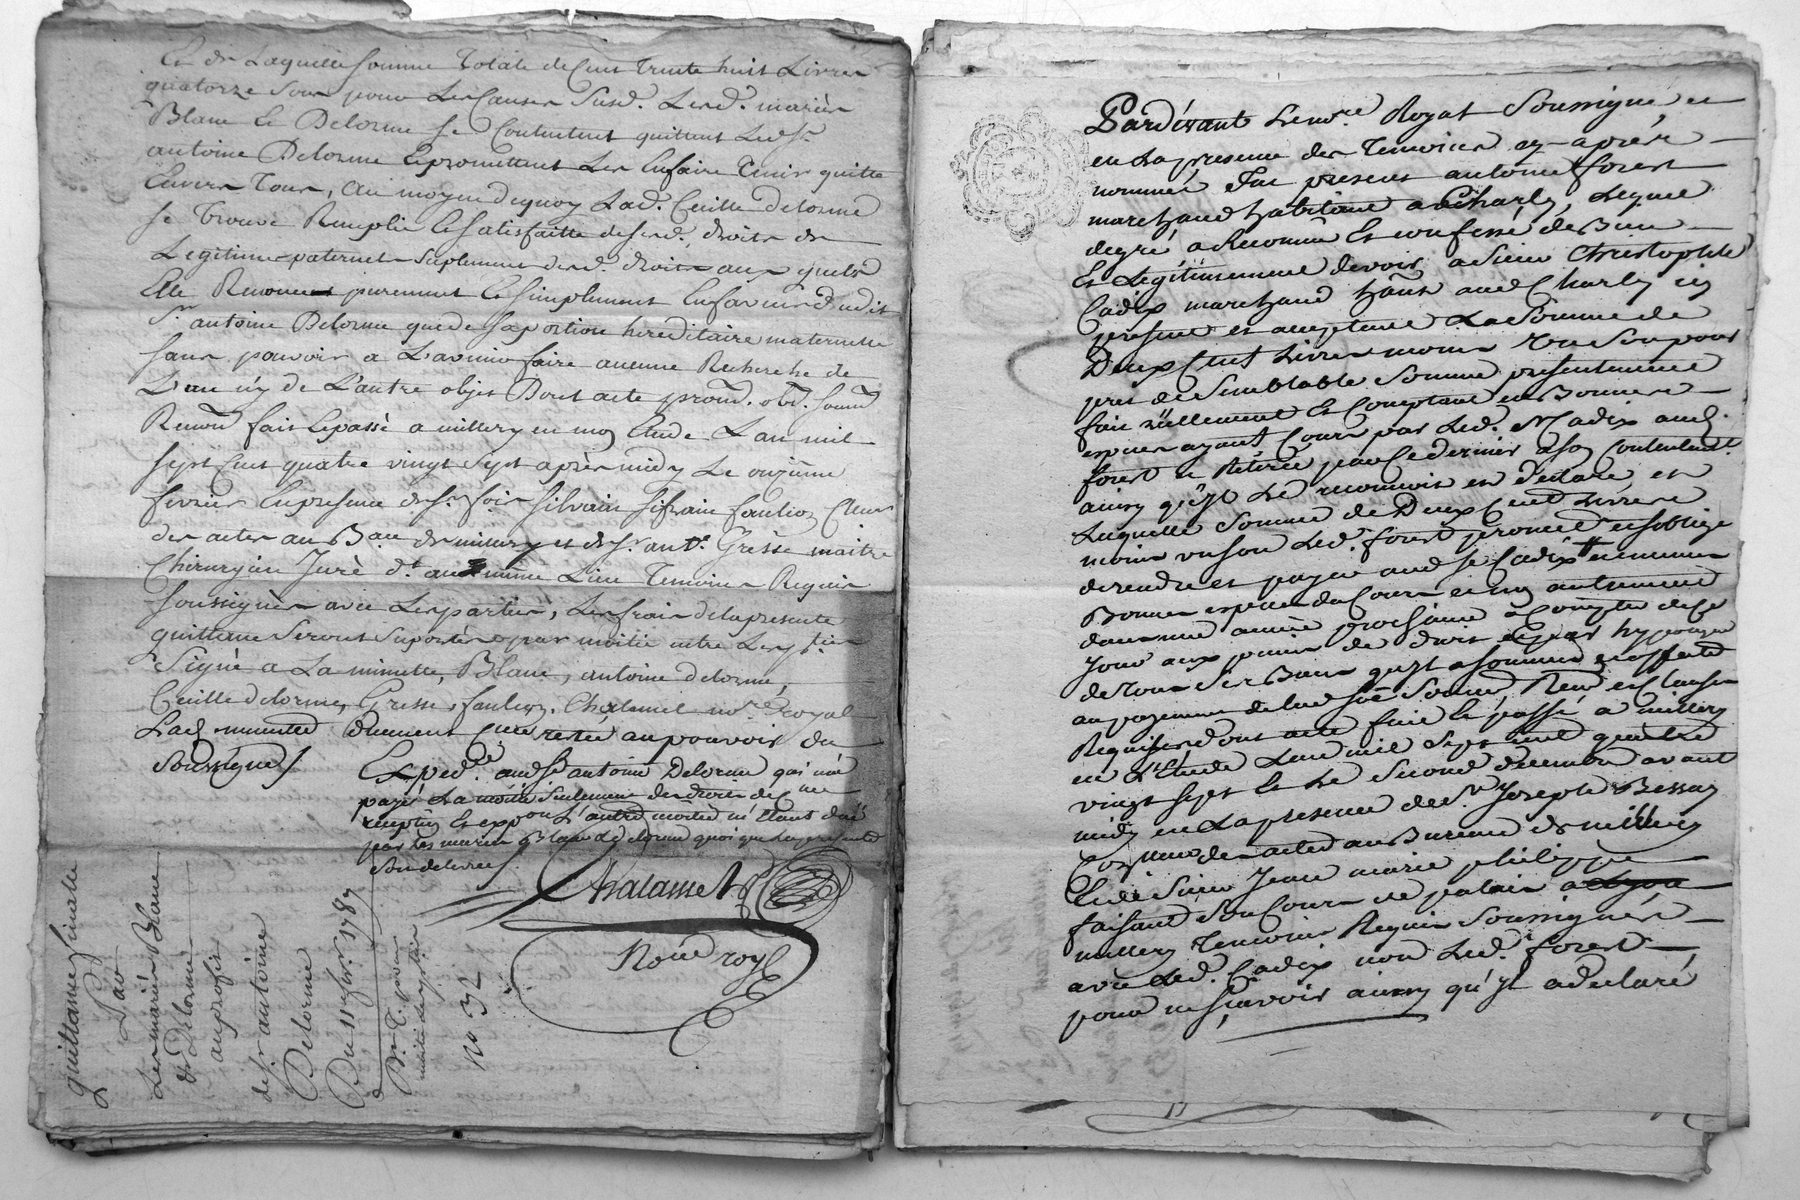 Et de Laquelle somme Totale de Cent Trente huit Livres
quatorze sous pour Les Causes Susd. Lesd. mariés
Blanc Et Delorme se Contentent quittent Led. Sr
antoine Delorme Et promettent Les En faire Tenir quitte
Envers Tous, Au moyen de quoy Lad. Cecille delorme
se Trouve Remplie Et satisfaitte de sesd. droits de
Legitime paternel Suplement desd. droits aux quels
Elle Renonce purement Et simplement En faveur dudit
Sr antoine Delorme que de sa portion hereditaire maternelle
sans pouvoir a L'avenir faire aucune Recherche de
L'un n'y de L'autre objet Dont acte prom. obl. soum
Renon fait Et passé a millery en mon Etude L an mil
sept Cent quatre vingt sept après midy Le onzieme
fevrier En presence de Sr
des actes au Bau de millery et de Sr ant. Gresse maitre
Chirurgien Juré dt au même Lieu Temoins Requis
soussignés avec Les parties, Les frais de la presente
quittance Seront Suportés par moitié entre Les pties
Signé a La minutte, Blanc, antoine delorme,
Cecille delorme, Gresse, Chalamel nore royal
Lad minutte duement restée au pouvoir du
soussigné /
Exped. aud Sr antoine Delorme qui m'a
payé La moitié Seulement des droits de
L'autre moitié m'étant due
par Les mariés Blanc & delorme quoique La presente
Soit delivrée /
Chalamel
Noire roy
quittance finale
Par
Les mariés Blanc
& Delorme
au profit
de Sr antoine
Delorme
Du 11 febr. 1787
No 32
Pardevant Le nre Royal Soussigné et
en La presence des Temoins cy-après
nommés Fut present antoine forest
marchand habitant a Charly, Lequel
de gré a Reconnu Et confessé de Bien
Et Legitimement devoir a Sieur Christophle
Cadix marchand hant aud Charly icy
present et acceptant La Somme de
Deux Cent Livres moins un Sou pour
pret de Semblable Somme presentement
fait réellement Et Comptant en Bonnes
especes ayant Cours par Led. Sr Cadix aud.
forest et Retirée par Ce dernier a son Contentemt
ainsy qu'yl Le reconnoit et declare et
Laquelle Somme de Deux Cent Livres
moins un sou Led. forest promet et s'oblige
de rendre et payer aud Sr Cadix en mêmes
Bonnes especes du Cours et non autrement
dans une année prochaine a Compter de Ce
Jour aux peines de droit et par hypoteque
de Tous Ses Biens qu'yl a Soumis et affecté
au payement de lad Somme, Renon et Clauses
Requises dont acte fait Et passé a millery
en L'Etude L'an mil Sept cent quatre
vingt Sept Et Le Second decembre avant
midy en La presence de Sr Joseph Bessay
Commis des actes au Bureau de millery
Et de Sieur Jean marie philippe
faisant Son Cours de palais a Lyon
millery Temoins Requis Soussignés
avec Led. Cadix non Led. forest
pour ne Sçavoir ainsy qu'yl a declaré